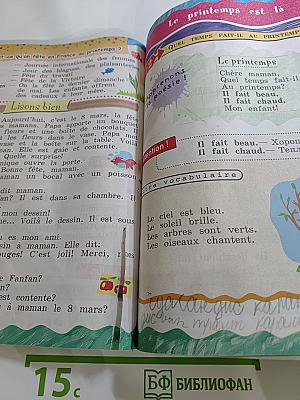 est-ce qu'on fête en France au printemps ?
Journée internationale des femmes
Jour des blagues, des plaisanteries
Fête du travail
Fête de la Victoire
On la fête le dimanche
mai. Les enfants offrent
des cadeaux à leur mère.
Lisons bien
Aujourd'hui, c'est le 8 mars, la fête
mamans. Papa apporte un bouquet
fleurs et une boîte de chocolats.
les fleurs dans le vase. Papa
vase et la boîte sur la table. Voilà
maman. Elle est gaie et contente.
Quelle surprise!
ouvre la porte.
Bonne fête, maman.
un bocal avec un poisson
dit maman.
Fanfan? Il est dans sa chambre. Il
mon dessin!
Voilà le dessin. Il est sous
tu es mon ami.
à maman. Elle dit:
rouges! C'est joli! Merci, mes
Fanfan?
est contente?
à maman le 8 mars?
Le printemps est là
QUEL TEMPS FAIT-IL AU PRINTEMPS
Apprenons
la poésie!
Le printemps
Chère maman,
Quel temps fait-il
Au printemps?
Il fait beau,
Il fait chaud,
Mon enfant!
Attention!
Il fait beau.— Хорошая
Il fait chaud.— Тепло
vocabulaire
Le ciel est bleu.
Le soleil brille.
Les arbres sont verts.
Les oiseaux chantent.
15с
БФ БИБЛИОФАН